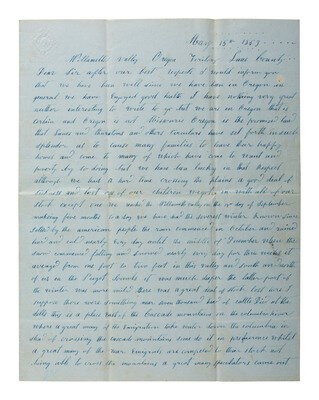 May 15th 1853
Willamette Valley Oregon Teritory Lane County
Dear Sir after our best respects I would inform you
that we have been well since we have been in Oregon in
general we have Enjoyed good health I have nothing very great
nither interesting to write to you but we are in Oregon that is
certain and Oregon is not Missourie Oregon is the promised land
that Lanes and Thurstons and others circulars have set forth in such
splendor as to cause many families to leave their happy
homes and come to many of which have come to want in
poverty by so doing but we have been lucky in that respect
although we had a hard time crossing the plains a good deal of
sickness and lost of our children we got in with all of our
stock except one we made the Willamette valley on the day of September
making five months to a day we have had the severest winter known since
setled by the american people the rain commenced in October and rained
hard and cold nearly every day until the middle of December when the
snow commenced falling and snowed nearly every day for three weeks it
averaged from one foot to two foot in this valley and south and north
of us in the it was much deeper the latter part of
the winter was more mild there was a great deal of stock lost I
suppose there were something near seven thousand head of cattle Died at the
dells this is a place East of the Cascade mountains on the columbia
where a great many of the Emigration take water down the columbia in
stead of crossing the cascade mountains some do it in preference whilst
a great many of the Emigrants are compelled to their stock not
being able to cross the mountains a great many speculators came out